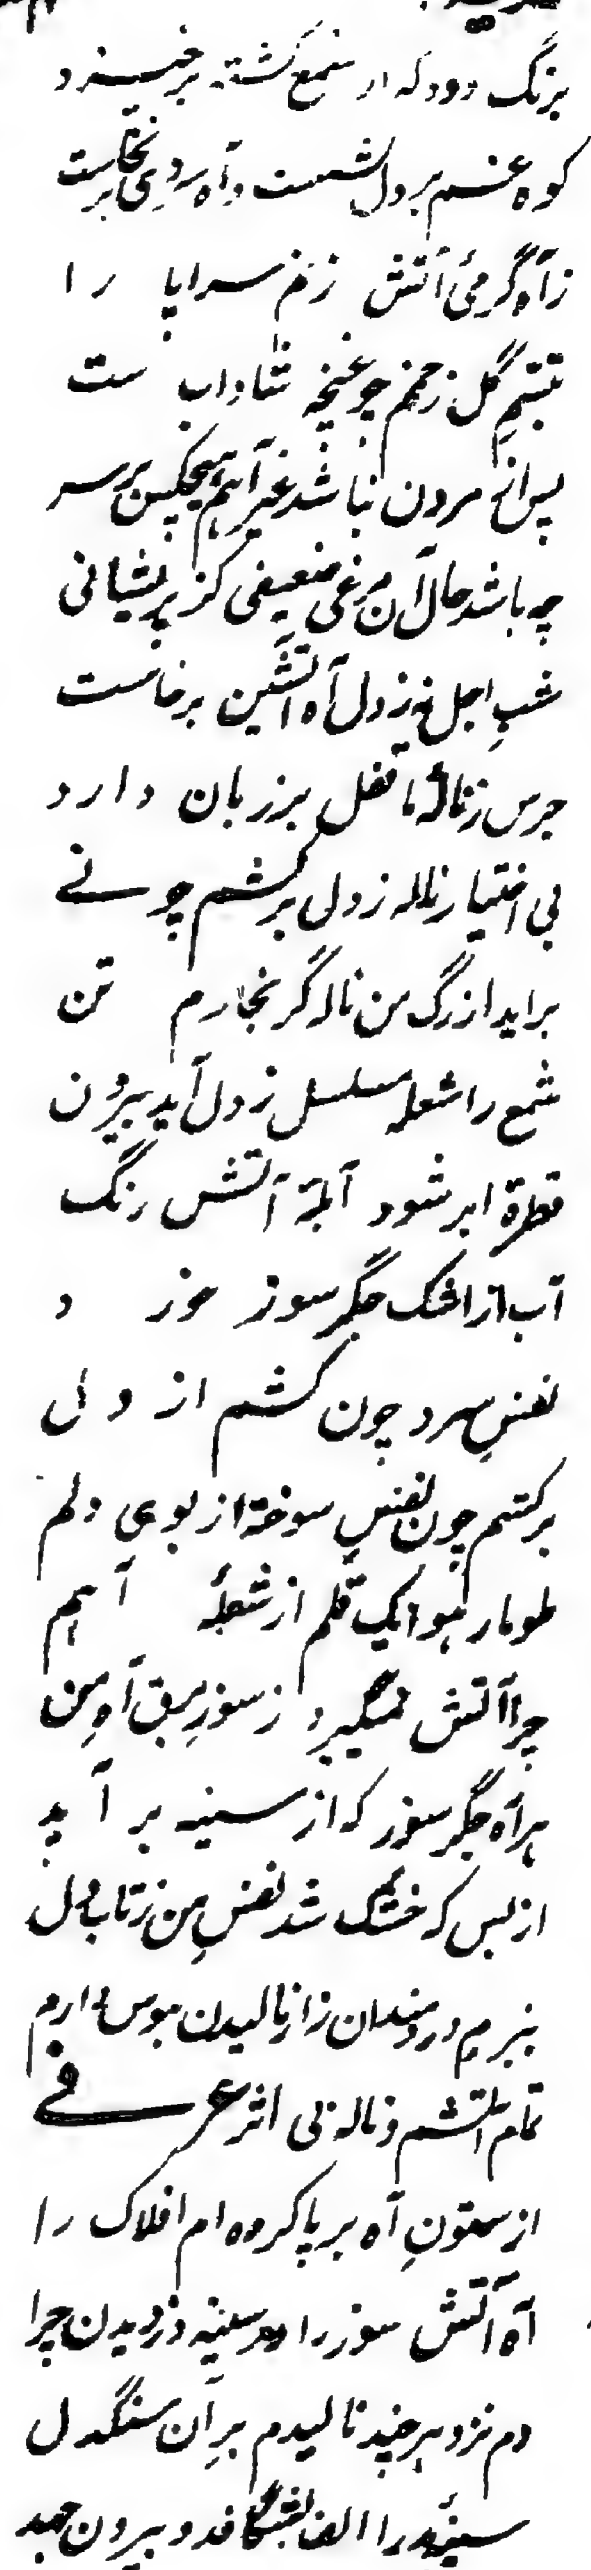 برنگ دود که از شمع کشته برخیزد
کوه غم بر دل نشست و آه سردی برنخاست
ز آه گرمئ آتش زنم سراپا را
تبسم گل زخمم چو غنچه شاداب ست
پس از مردن نباشد غیر آهم هیچکس بر سر
چه باشد حال آن مرغی ضعیفی کز پریشانی
شب اجل نه ز دل آه آتشین برخاست
جرس ز نالهٔ ما قفل بر زبان دارد
بی اختیار ناله ز دل برکشم چو نے
براید از رگ من ناله گر نخارم تن
شمع را شعله مسلسل ز دل آید بیرون
قطرهٔ ابر شود آبلهٔ آتش رنگ
آب از اشک جگر سوز خورد
نفسِ سرد چون کشم از دل
برکشم چون نفسِ سوخته از بوی دلم
طومار هوا یک قلم از شعلهٔ آهم
چرا آتش نمیگیرد ز سوزِ برق آهِ من
هر آه جگر سوز که از سینه بر آید
از بس که خشک شد نفسِ من ز تاب دل
ببزم دردمندان ناز نالیدن هوس دارم
تمام آتشم و ناله بی اثر عرفے
از ستونِ آه بر پا کرده ام افلاک را
آه آتش سوز را در سینه دزدیدن چرا
دم نزد هر چند نالیدم برِ آن سنگدل
سینهٔ را الف بشگافد و بیرون جهد